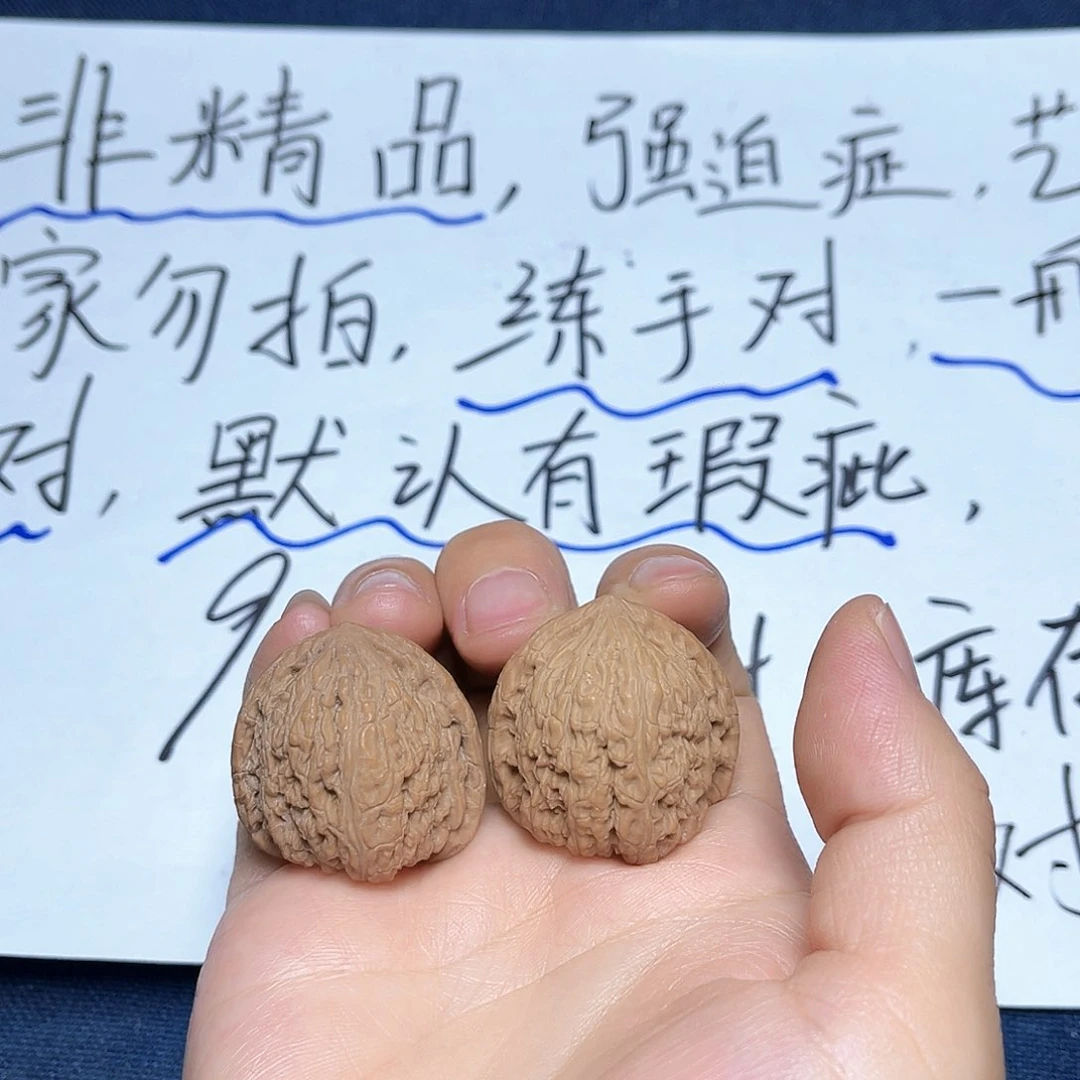 非精品,强迫症,艺
家勿拍,练手对,一般
对,默认有瑕疵,
9 库存
对